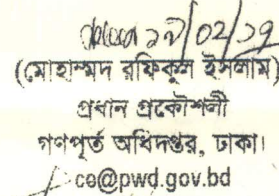 ১৭/02/১৭
(মোহাম্মদ রফিকুল ইসলাম)
প্রধান প্রকৌশলী
গণপূর্ত অধিদপ্তর, ঢাকা।
ce@pwd.gov.bd